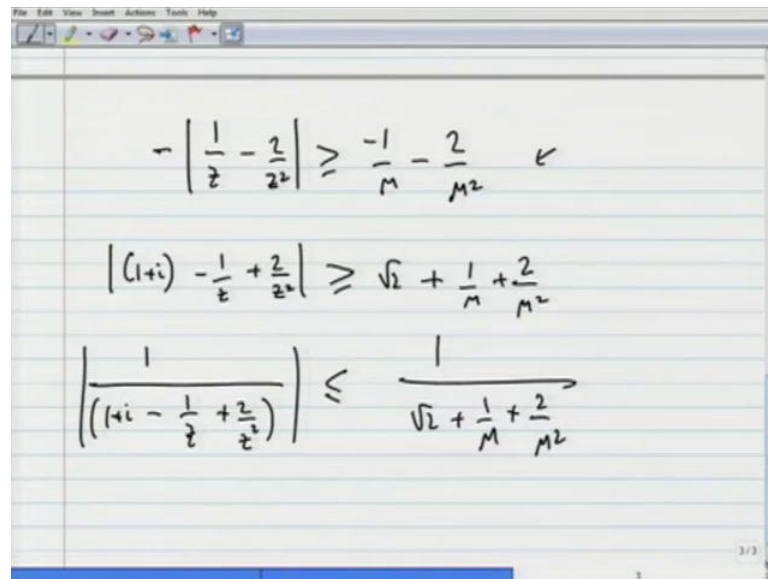 File Edit View Insert Actions Tools Help
- | 1/z - 2/z² | ≥ -1/M - 2/M²
| (1+i) - 1/z + 2/z² | ≥ √2 + 1/M + 2/M²
| 1/(1+i - 1/z + 2/z²) | ≤ 1/(√2 + 1/M + 2/M²)
3/3